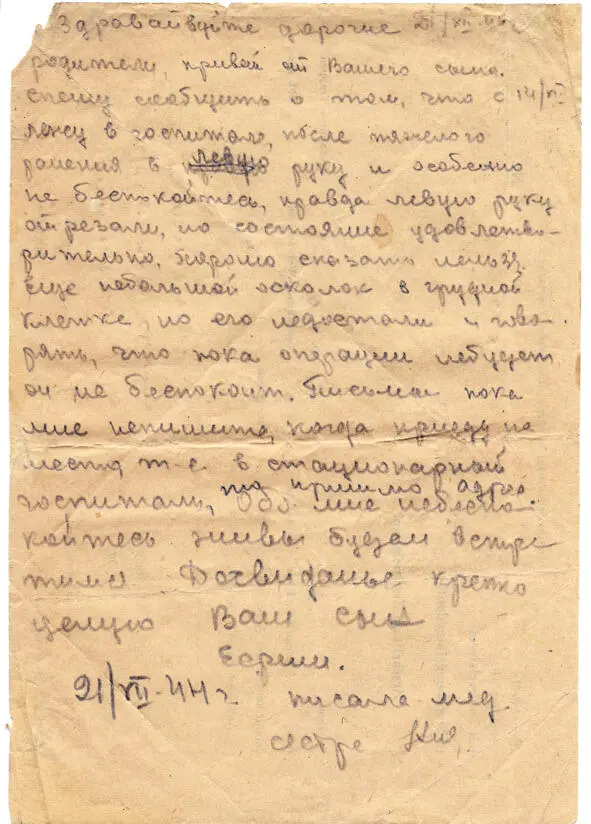 Здравайвуйте дорогие 21/XII-44г
родители, привет от Вашего сына.
спешу сообщить о том, что с 14/XII
лежу в госпитале, после тяжелого
ранения в левую руку и особенно
не беспокойтесь, правда левую руку
отрезали, но состояние удовлетво-
рительно, хорошо сказать нельзя.
Еще небольшой осколок в грудной
клетке, но его недостали и гово-
рять, что пока операции небудет
он не беспокоит. Письма пока
мне непишите, когда приеду на
место, т-е. в стационарный
госпиталь, то пришлю адрес.
Обо мне небеспо-
койтесь живы будем встре
тимся Досвиданье крепко
целую Ваш сын
Ефрем.
21/XII-44г писала мед
сестра